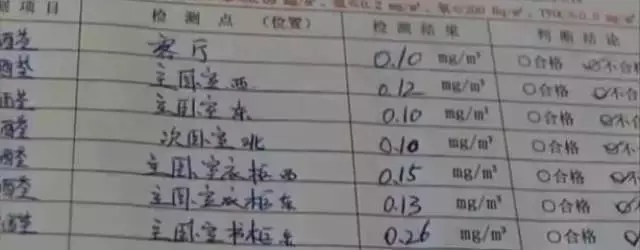 项目 检测点（位置） 检测结果 判断结论
客厅 0.10 mg/m³ ○合格 ○不合
主卧室西 0.12 mg/m³ ○合格 ○不合
主卧室东 0.10 mg/m³ ○合格 ○不合
次卧室北 0.10 mg/m³ ○合格 ○不
主卧室衣柜西 0.15 mg/m³ ○合格 ○不
主卧室衣柜东 0.13 mg/m³ ○合格 ○不
主卧室书柜东 0.26 mg/m³ ○合格